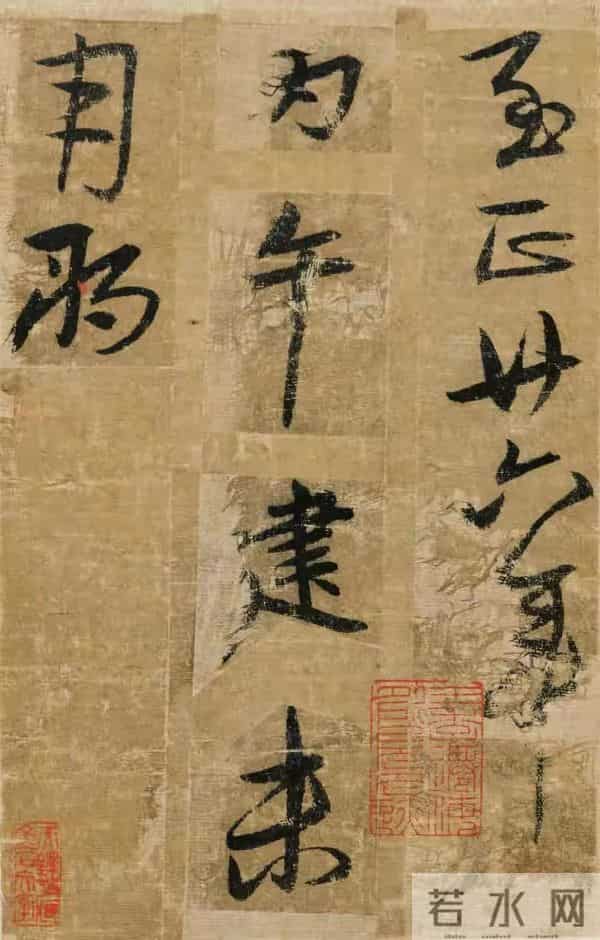 至正廿六年
丙午建未
月
若水网